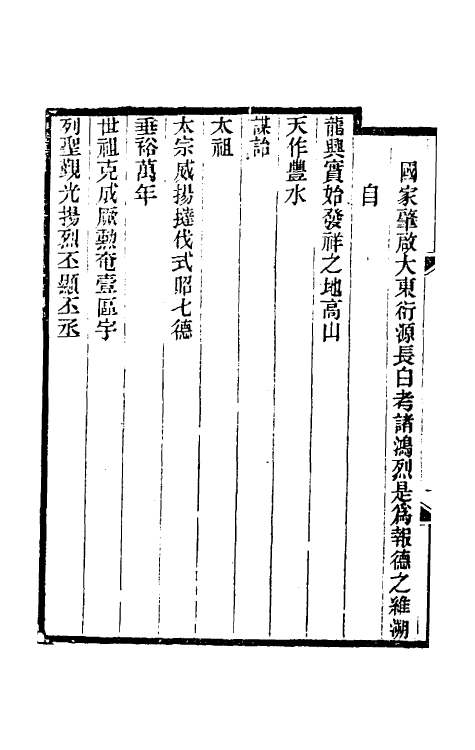 國家肇啟大東衍源長白考諸鴻烈是為報德之維溯
自
龍興實始發祥之地高山
天作豐水
謀詒
太祖
太宗威揚撻伐式昭七德
垂裕萬年
世祖克成厥勳奄壹區宇
列聖覲光揚烈丕顯丕承